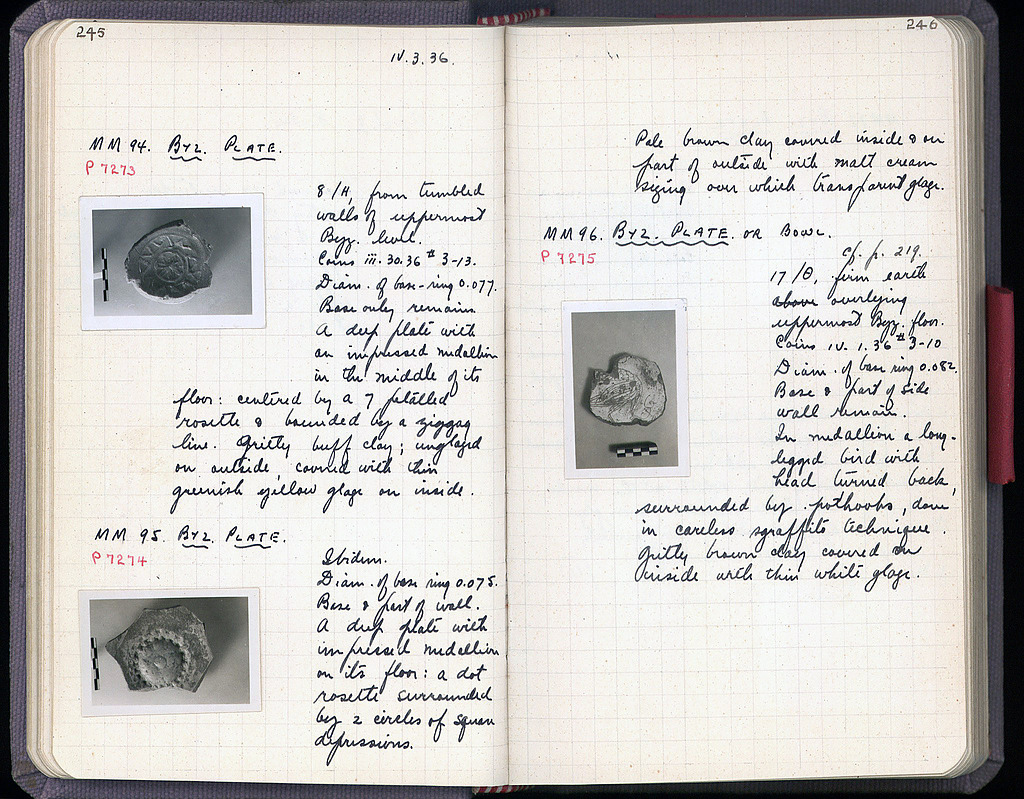 245
IV.3.36.
MM 94. BYZ. PLATE.
P 7273
8/H, from tumbled
walls of uppermost
Byz. level.
Coins iii.30.36 # 3-13.
Diam. of base-ring 0.077.
Base only remains
A deep plate with
an impressed medallion
in the middle of its
floor: centered by a 7 petalled
rosette & bounded by a zigzag
line. Gritty buff clay; unglazed
on outside covered with thin
greenish yellow glaze on inside.
MM 95. BYZ. PLATE.
P 7274
Ibidem.
Diam. of base ring 0.075.
Base & part of wall.
A deep plate with
impressed medallion
on its floor: a dot
rosette surrounded
by 2 circles of square
depressions.
246
Pale brown clay covered inside & on
part of outside with matt cream
sizing over which transparent glaze.
MM 96. BYZ. PLATE OR BOWL.
P 7275
cf. p. 219.
17/Θ, firm earth
above overlying
uppermost Byz. floor.
Coins IV.1.36 # 3-10
Diam. of base ring 0.082.
Base & part of side
wall remain.
In medallion a long-
legged bird with
head turned back,
surrounded by pothooks, done
in careless sgraffito technique.
Gritty brown clay covered on
inside with thin white glaze.